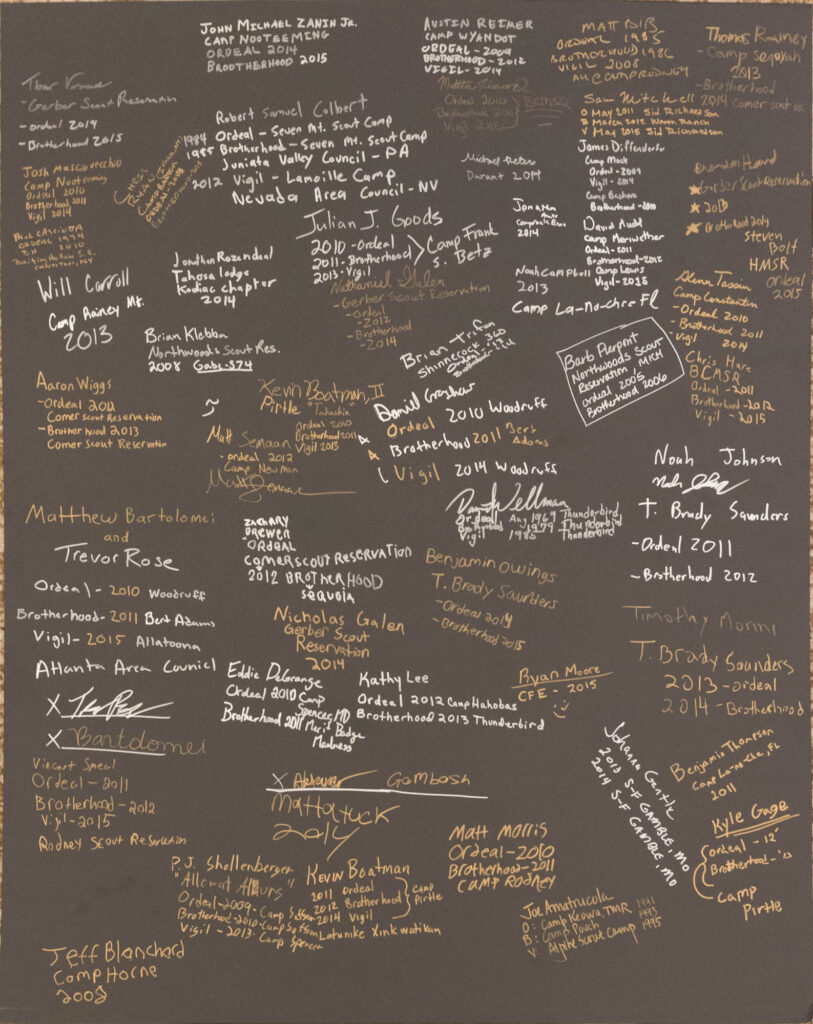 JOHN MICHAEL ZANIN JR.
CAMP NOOTEEMING
ORDEAL 2014
BROOTHERHOOD 2015
AUSTIN REIMER
CAMP WYANDOT
ORDEAL - 2009
BROTHERHOOD - 2012
VIGIL - 2014
MATT DIB
ORDEAL 1985
BROTHERHOOD 1986
VIGIL 2008
Thomas Ramey
- Camp Sequoyah
2013
- Brotherhood
2014 Comer scout res.
- Gerber Scout Reservation
- ordeal 2014
- Brotherhood 2015
Ordeal 2010
Brotherhood 2011
Vigil 2015
BCMSR
Sam Mitchell
O May 2011 Sid Richardson
B March 2012 Worth Ranch
V May 2015 Sid Richardson
Robert Samuel Colbert
1984 Ordeal - Seven Mt. Scout Camp
1985 Brotherhood - Seven Mt. Scout Camp
Juniata Valley Council - PA
2012 Vigil - Lamoille Camp
Nevada Area Council - NV
Josh Mascioveccho
Camp Nooteeming
Ordeal 2010
Brotherhood 2011
Vigil 2014
Michael Peters
Durant 2014
James Diffenderfer
Camp Mack
Ordeal - 2009
Vigil - 2014
Camp Bashore
Brotherhood - 2010
Brendan Heard
Gerber Scout Reservation
2013
Brotherhood 2014
Paul Casciotta
ORDEAL 1974
B.H. 2010
Julian J. Goods
2010 - Ordeal
2011 - Brotherhood
2013 - Vigil
Camp Frank
S. Betz
Jonathan
2014
David Mudd
Camp Meriwether
Ordeal - 2011
Brotherhood - 2012
Camp Lewis
Vigil - 2015
Steven
Bolt
HMSR
ordeal
2015
Will Carroll
Camp Rainey Mt.
2013
Jonathon Rozendal
Tahosa lodge
Kodiac chapter
2014
Nathaniel Galen
- Gerber Scout Reservation
- Ordeal
- 2012
- Brotherhood
- 2014
Noah Campbell
2013
Camp La-no-che Fl
Glenn Tassin
Camp Constantin
- Ordeal 2010
- Brotherhood 2011
Vigil 2014
Brian Klebba
Northwoods Scout Res.
2008 Gabe-S74
Brian Trifon
Shinnecock 360
Barb Pierpont
Northwoods Scout
Reservation, MICH
Ordeal 2005
Brotherhood 2006
Chris Hare
BCMSR
Ordeal - 2011
Brotherhood - 2012
Vigil - 2015
Aaron Wiggs
- Ordeal 2011
Comer Scout Reservation
- Brotherhood 2013
Comer Scout Reservation
Kevin Boatman, II
Pirtle
Ordeal 2010
Brotherhood 2011
Vigil 2013
Matt Semaan
- ordeal 2012
Camp Newman
Matt Semaan
Daniel Grashaw
Ordeal 2010 Woodruff
Brotherhood 2011 Bert Adams
Vigil 2014 Woodruff
Noah Johnson
T. Brady Saunders
- Ordeal 2011
- Brotherhood 2012
Matthew Bartolomei
and
Trevor Rose
Ordeal - 2010 Woodruff
Brotherhood - 2011 Bert Adams
Vigil - 2015 Allatoona
Atlanta Area Council
X
X Bartolomei
ZACHARY
BREWER
ORDEAL
COMERSCOUT RESERVATION
2012 BROTHERHOOD
SEQUOIA
Wellman
Ordeal Aug 1969 Thunderbird
Brotherhood 1979 Thunderbird
Vigil 1985 Thunderbird
Benjamin Owings
T. Brady Saunders
- Ordeal 2014
- Brotherhood 2015
Nicholas Galen
Gerber Scout
Reservation
2014
Timothy Morini
T. Brady Saunders
2013 - ordeal
2014 - Brotherhood
Eddie DeGrange
Ordeal 2010 Camp Spencer, MD
Brotherhood 2011 Merit Badge
Madness
Kathy Lee
Ordeal 2012 Camp Hahobas
Brotherhood 2013 Thunderbird
Ryan Moore
CFE - 2015
Vincent Smeal
Ordeal - 2011
Brotherhood - 2012
Vigil - 2015
Rodney Scout Reservation
Johanna Gentle
2013 S-F GAMBLE, MO
2014 S-F GAMBLE, MO
Benjamin Thompson
Camp La-no-che, FL
2011
X Gombosh
Mattatuck
2014
Kyle Gage
ordeal - 12'
Brotherhood - '13
Camp
Pirtle
Matt Morris
Ordeal - 2010
Brotherhood - 2011
CAMP RODNEY
P.J. Shollenberger
Ordeal - 2009 - Camp
Brotherhood - 2010 - Camp
Vigil - 2013 - Camp Spencer
Kevin Boatman
2011 Ordeal
2012 Brotherhood
2014 Vigil
Camp
Pirtle
Latunike Xinkwatikan
Joe Amatrucola
O: Camp Keowa, TMR 1991
B: Camp Pouch 1993
V: Alpine Scout Camp 1995
Jeff Blanchard
Camp Horne
2008